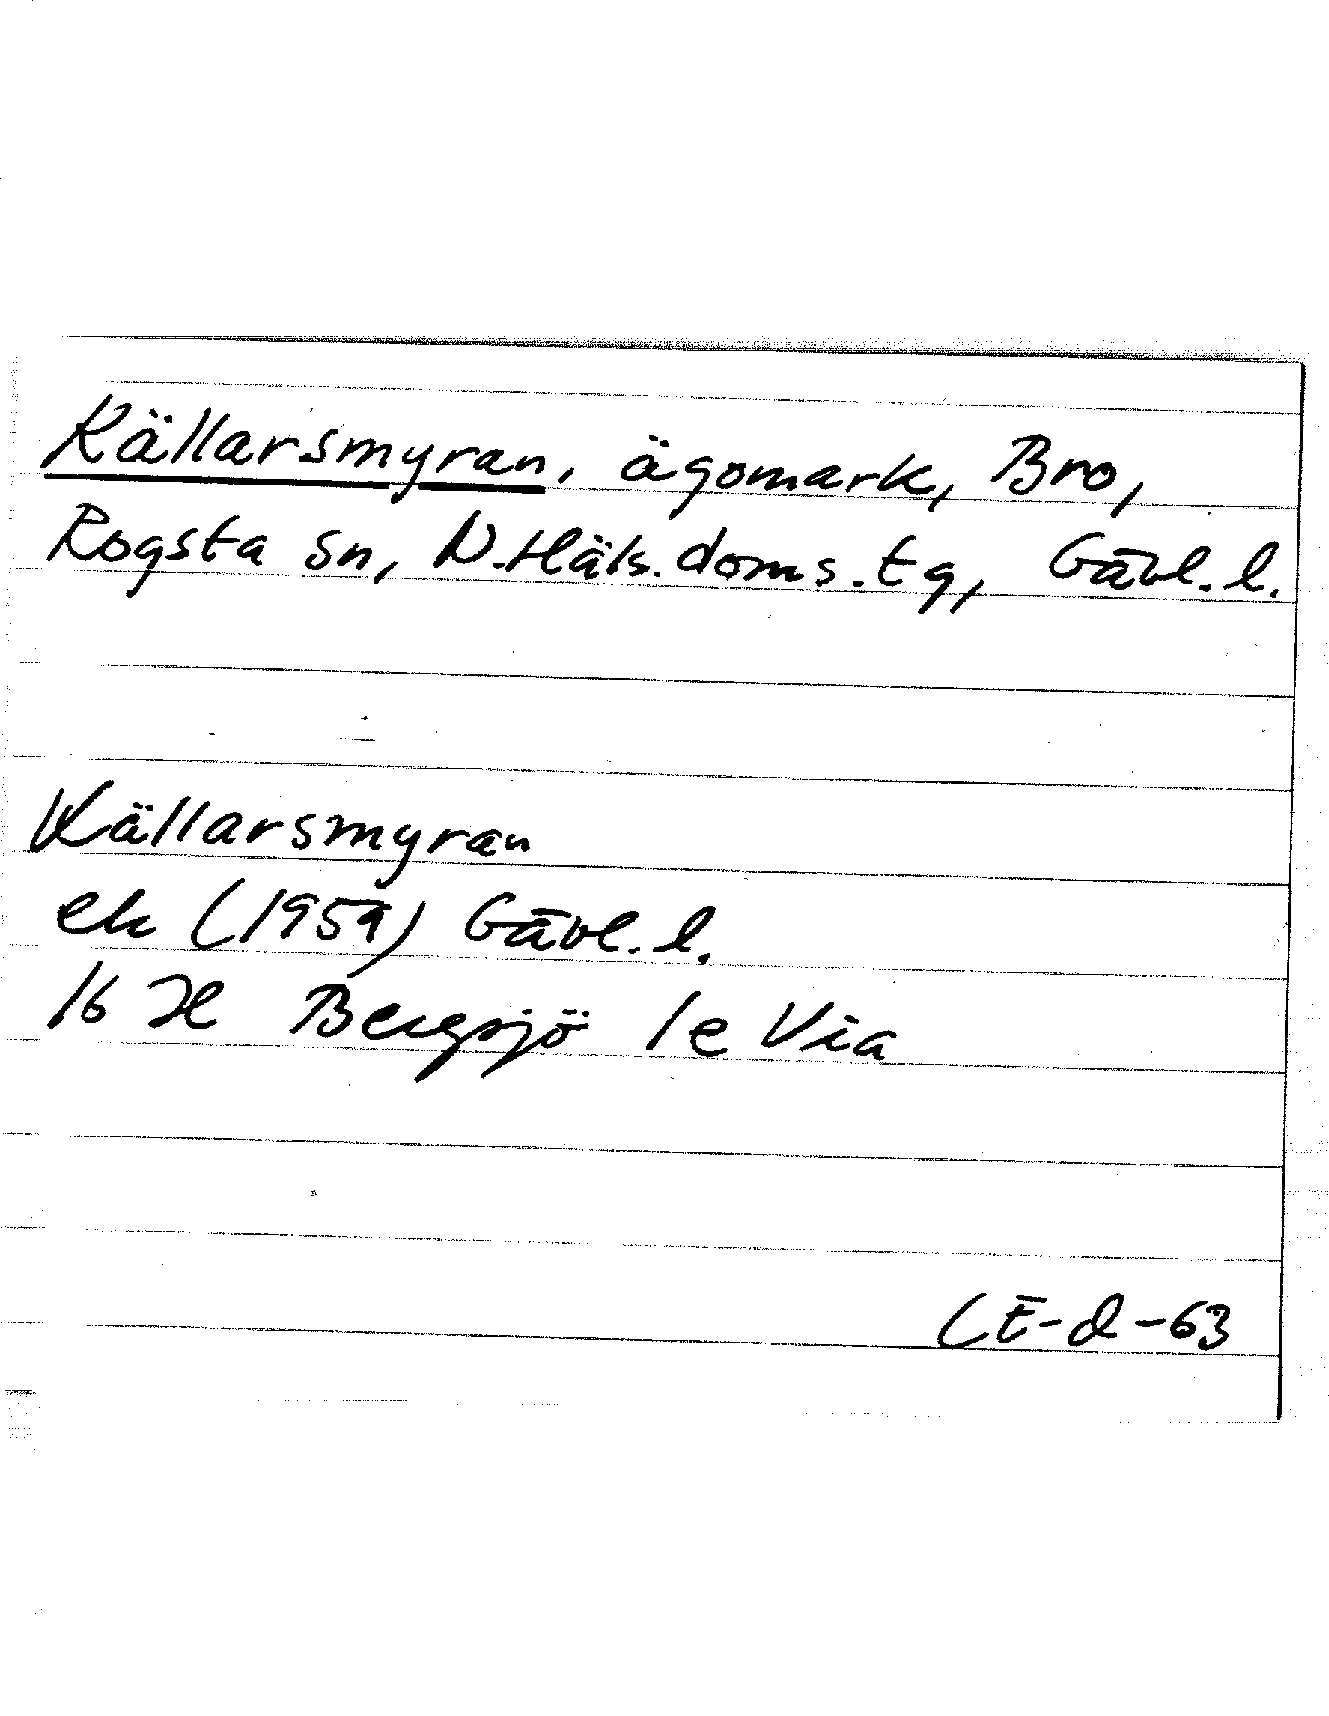 Källarsmyran, ägomark, Bro,
Rogsta sn, N.Häls.doms.tg, Gävl.l.
Källarsmyran
ek (1959) Gävl.l.
16 H Bergsjö 1e Via
CE-d-63